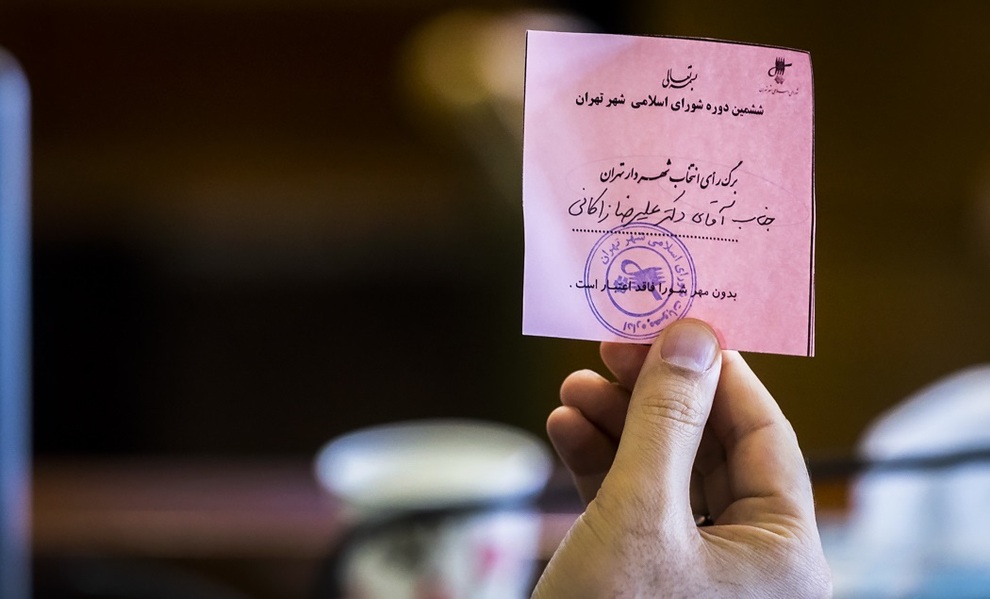 بسمه تعالی
شورای اسلامی شهر تهران
ششمین دوره شورای اسلامی شهر تهران
برگ رأی انتخاب شهردار تهران
جناب آقای دکتر علیرضا زاکانی
بدون مهر شورا فاقد اعتبار است .
شورای اسلامی شهر تهران
اداره مصوبات